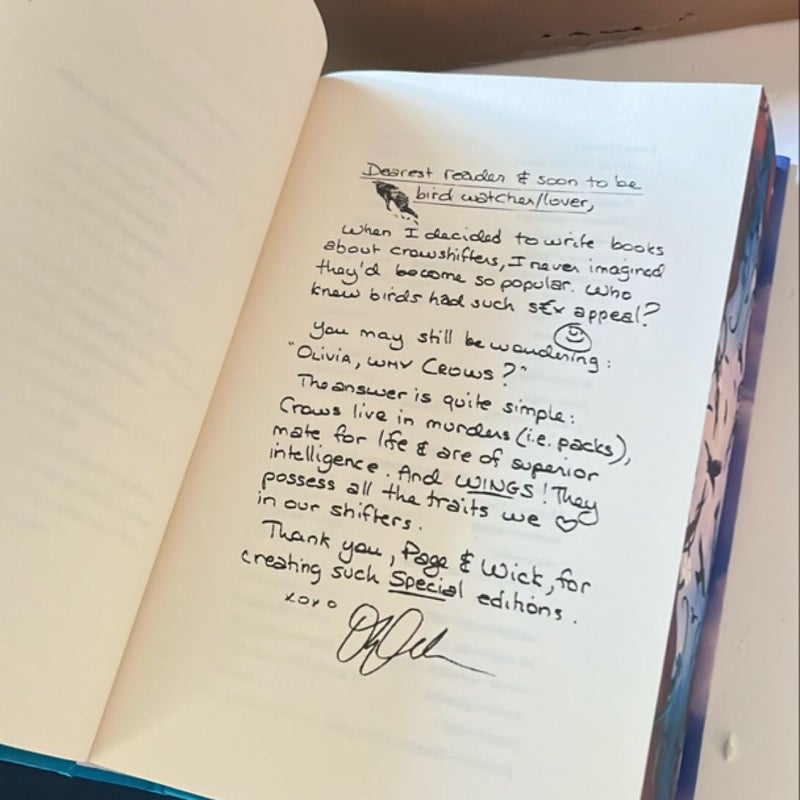 Dearest reader & soon to be
bird watcher/lover,
When I decided to write books
about crowshifters, I never imagined
they'd become so popular. Who
knew birds had such sEx appeal?
You may still be wondering:
"OLIVIA, WHY CROWS?"
The answer is quite simple:
Crows live in murders (i.e. packs),
mate for life & are of superior
intelligence. And WINGS! They
possess all the traits we ♡
in our shifters.
Thank you, Page & Wick, for
creating such Special editions.
xoxo